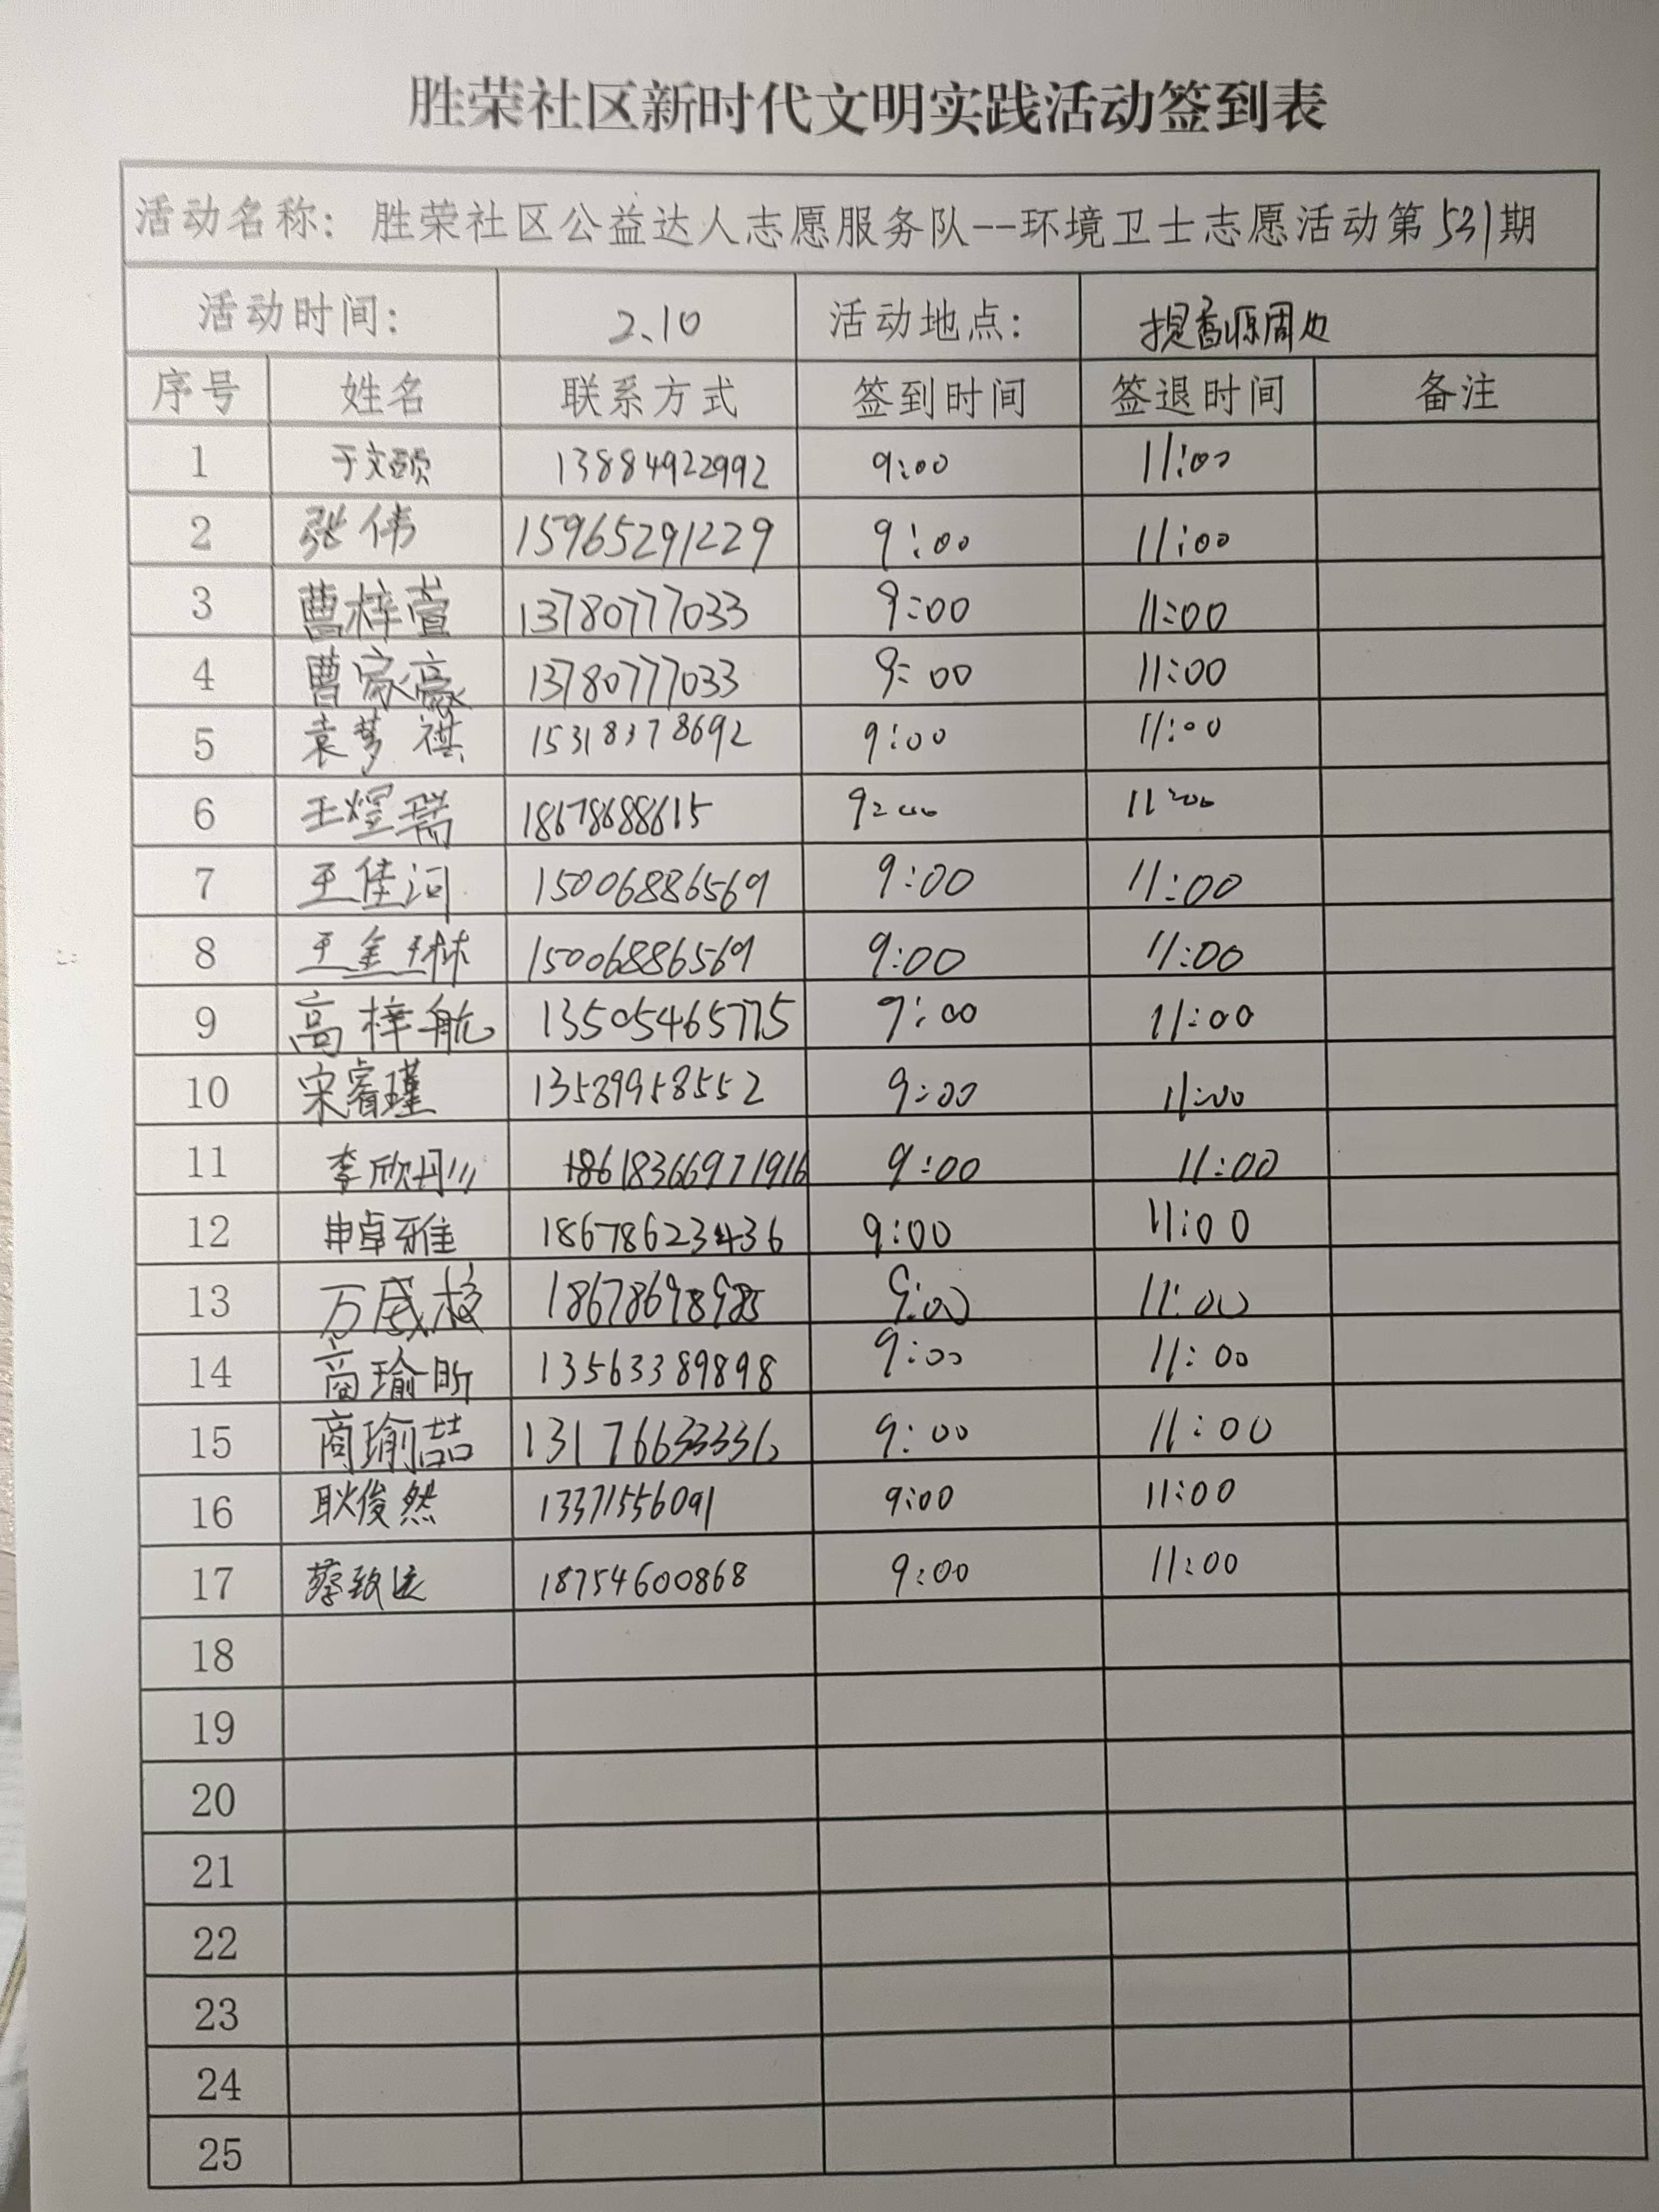 胜荣社区新时代文明实践活动签到表
活动名称：胜荣社区公益达人志愿服务队--环境卫士志愿活动第531期
活动时间： 2、10 活动地点： 提香源周边
序号 姓名 联系方式 签到时间 签退时间 备注
1 于文硕 13884922992 9:00 11:00
2 张伟 15965291229 9:00 11:00
3 曹梓萱 13780777033 9:00 11:00
4 曹家豪 13780777033 9:00 11:00
5 袁梦祺 15318378692 9:00 11:00
6 王煜瑞 18678688615 9:00 11:00
7 王佳河 15006886569 9:00 11:00
8 王金琳 15006886569 9:00 11:00
9 高梓航 13505465775 9:00 11:00
10 宋睿瑾 13589958552 9:00 11:00
11 李欣 9:00 11:00
12 申卓雅 18678623436 9:00 11:00
13 万 9:00 11:00
14 商瑜昕 13563389898 9:00 11:00
15 商瑜喆 9:00 11:00
16 耿俊然 13371556091 9:00 11:00
17 蔡致远 18754600868 9:00 11:00
18
19
20
21
22
23
24
25